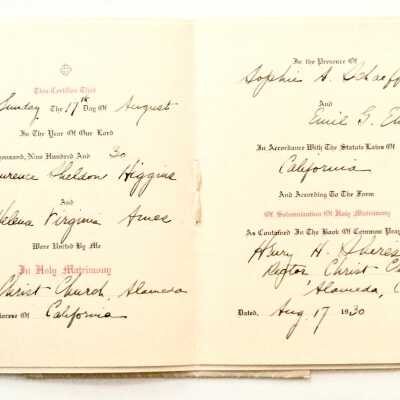 This Certifies That
Sunday The 17th Day Of August
In The Year Of Our Lord
Nine Hundred And 30
Sheldon Higgins
And
Helena Virginia Ames
Were United By Me
In Holy Matrimony
Christ Church, Alameda
Of California
In the Presence Of
Sophie A.
And
Emil G.
In Accordance With The Statute Laws Of
California
And According To The Form
Of Solemnization Of Holy Matrimony
As Contained In The Book Of Common
Henry H.
Rector Christ
Alameda,
Dated, Aug. 17 1930